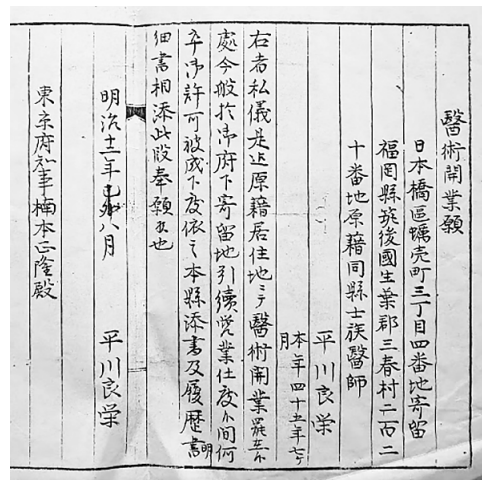 醫術開業願
日本橋區蠣売町三丁目四番地寄留
福岡縣筑後國生葉郡三春村二百二
十番地原籍同縣士族醫師
平川良栄
本年四十五年七ヶ
月
右者私儀是迠原籍居住地ニテ醫術開業罷在候
處今般於御府下寄留地引續営業仕度候間何
卒御許可被成下度依之本縣添書及履歴書明
細書相添此段奉願候也
明治十二年 八月
平川良栄
東京府知事楠本正隆殿